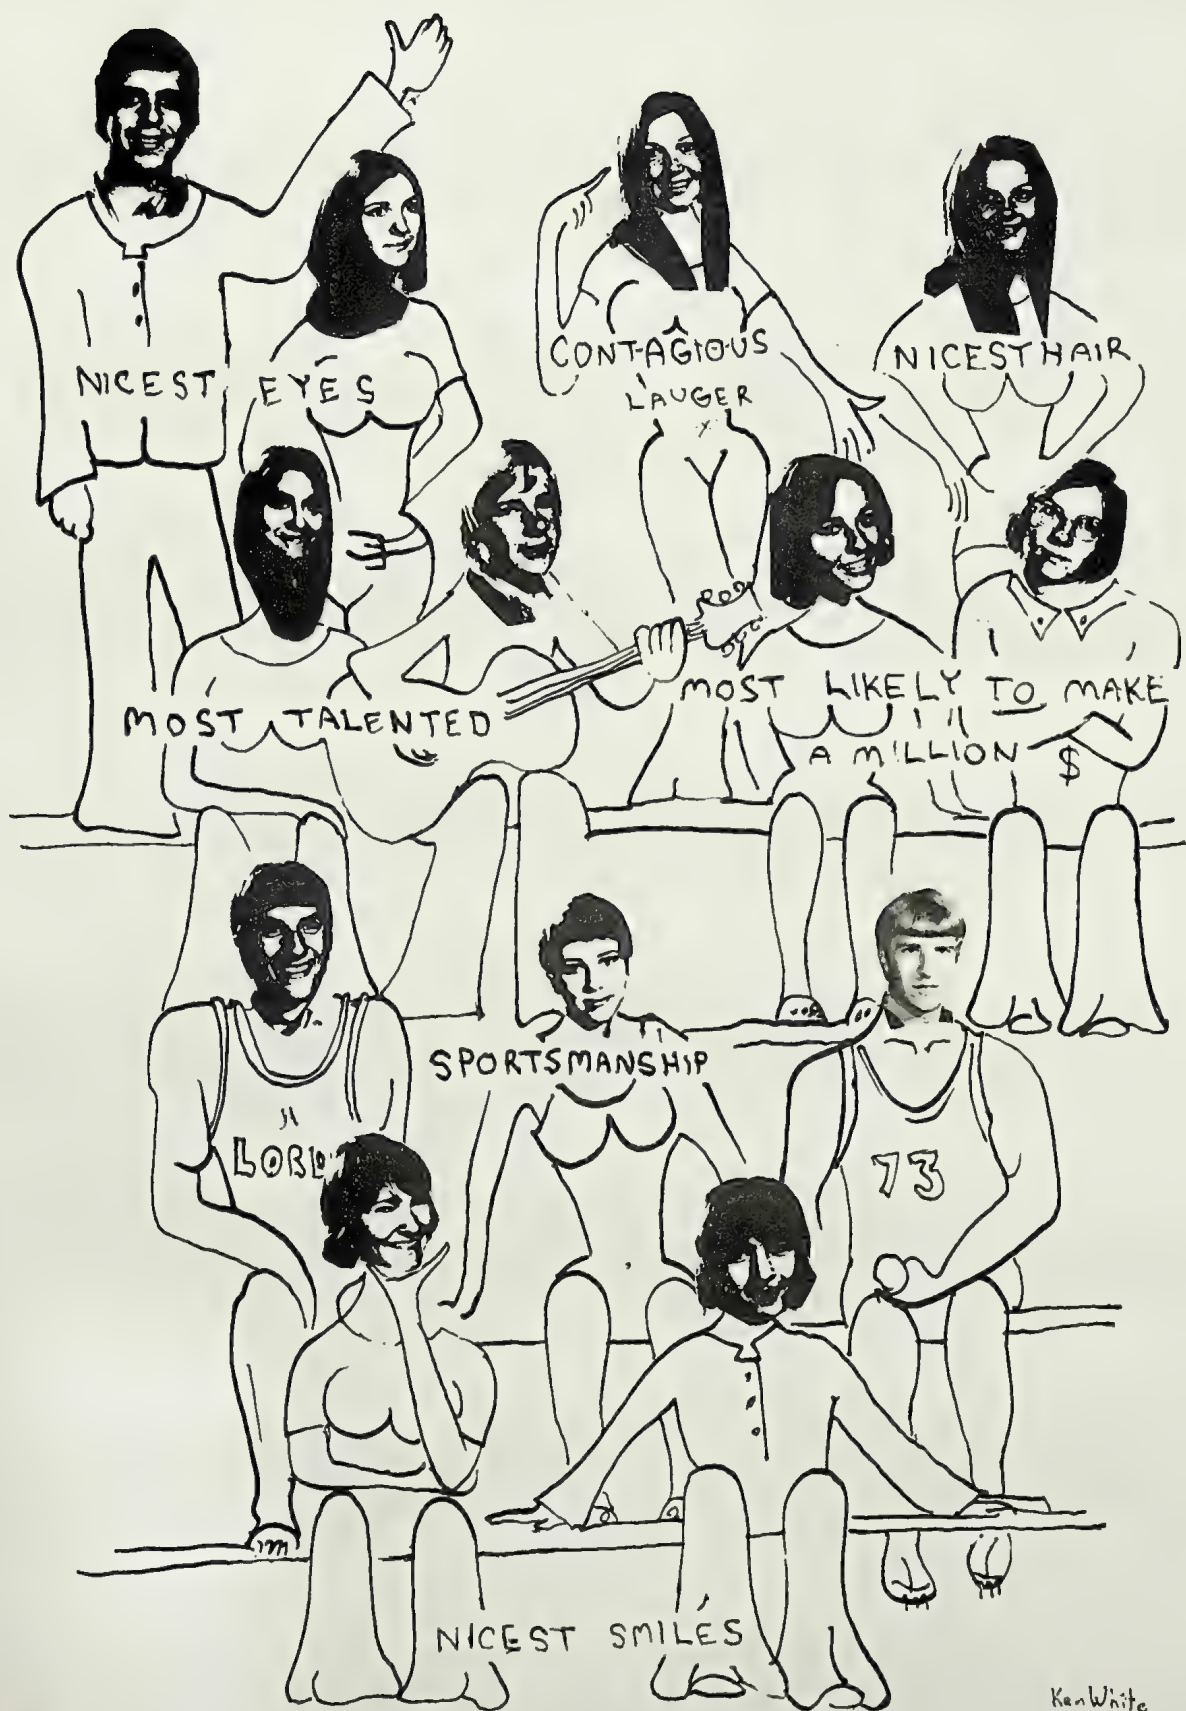 NICEST EYES
CONTAGIOUS
LAUGER
NICEST HAIR
MOST TALENTED
MOST LIKELY TO MAKE
A MILLION $
SPORTSMANSHIP
LORD
73
NICEST SMILES
Ken White